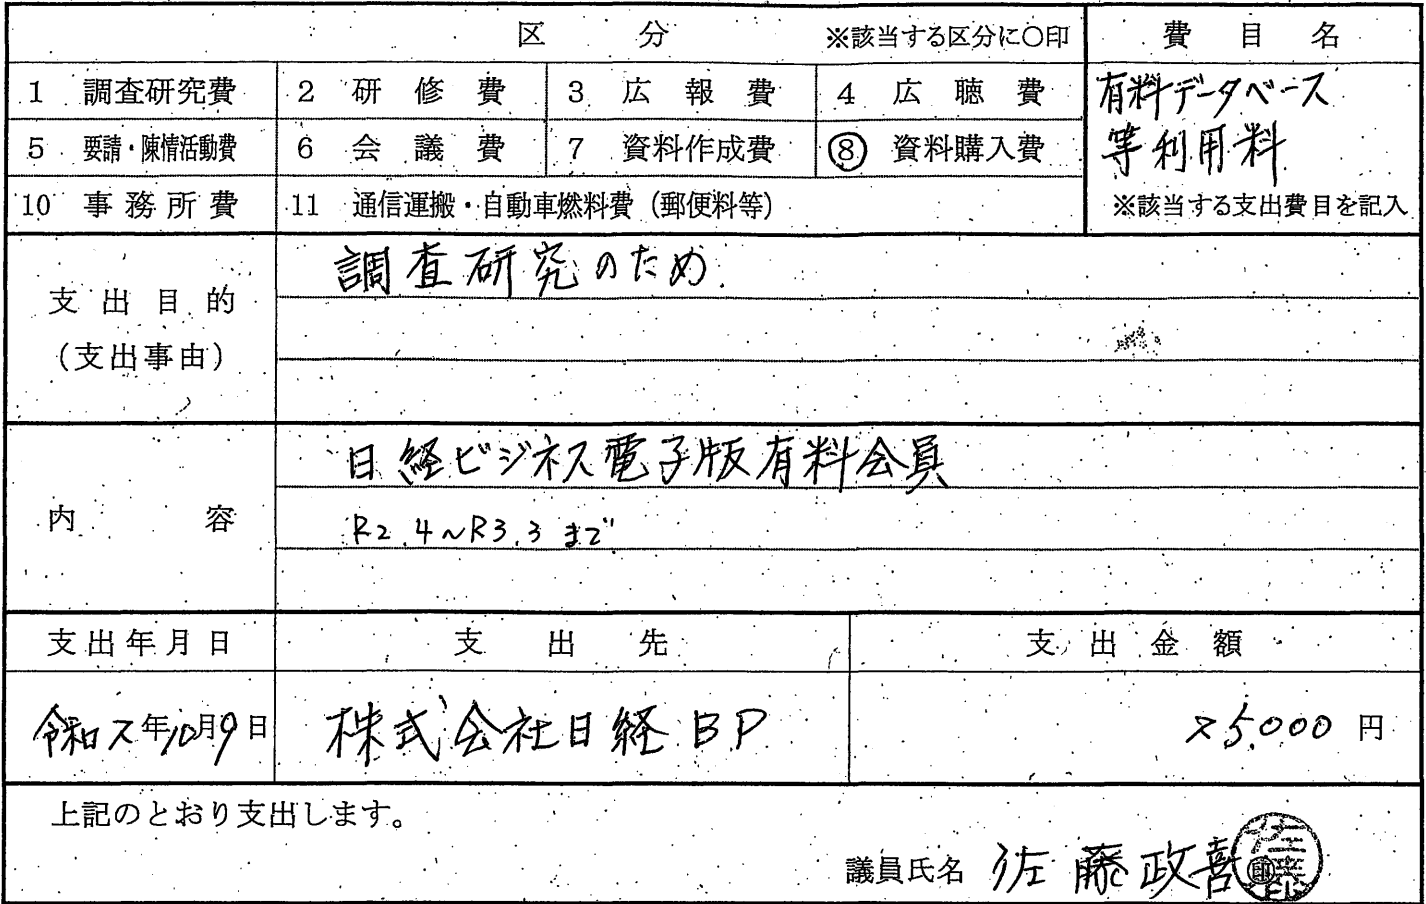 区 分 ※該当する区分に○印 費 目 名
1 調査研究費 2 研 修 費 3 広 報 費 4 広 聴 費 有料データベース
5 要請・陳情活動費 6 会 議 費 7 資料作成費 ⑧ 資料購入費 等利用料
10 事 務 所 費 11 通信運搬・自動車燃料費（郵便料等） ※該当する支出費目を記入
支 出 目 的
(支出事由)
調査研究のため.
内 容
日経ビジネス電子版有料会員
R2.4～R3.3まで
支出年月日 支 出 先 支 出 金 額
令和2年10月9日 株式会社日経BP 25,000円
上記のとおり支出します。
議員氏名 佐藤政喜 佐藤 印